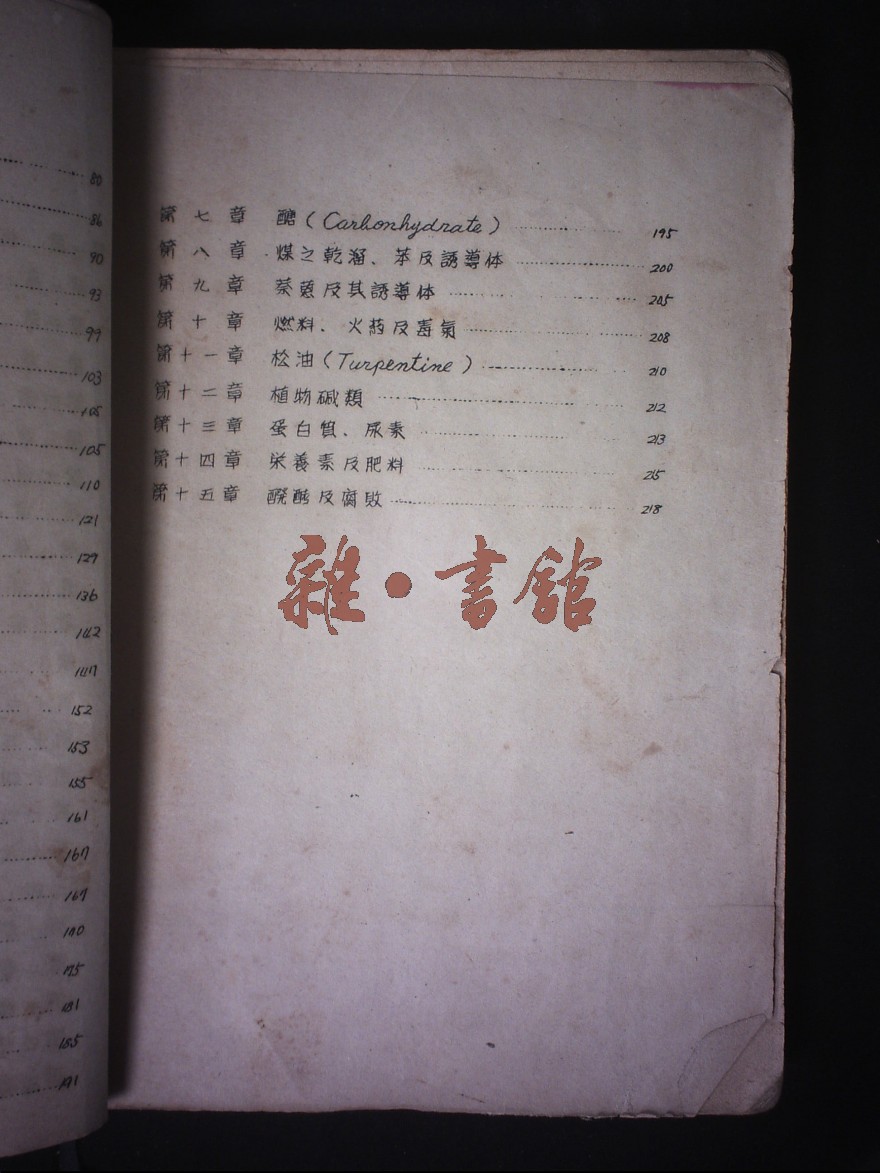 80
86
90
93
99
103
105
105
110
121
129
136
142
147
152
153
155
161
167
167
175
181
185
191
第七章 醣(Carbonhydrate) 195
第八章 煤之乾溜、苯及誘導体 200
第九章 萘蒽及其誘導体 205
第十章 燃料、火葯及毒氣 208
第十一章 松油(Turpentine) 210
第十二章 植物碱類 212
第十三章 蛋白質、尿素 213
第十四章 栄養素及肥料 215
第十五章 醱酵及腐敗 218
雜·書館